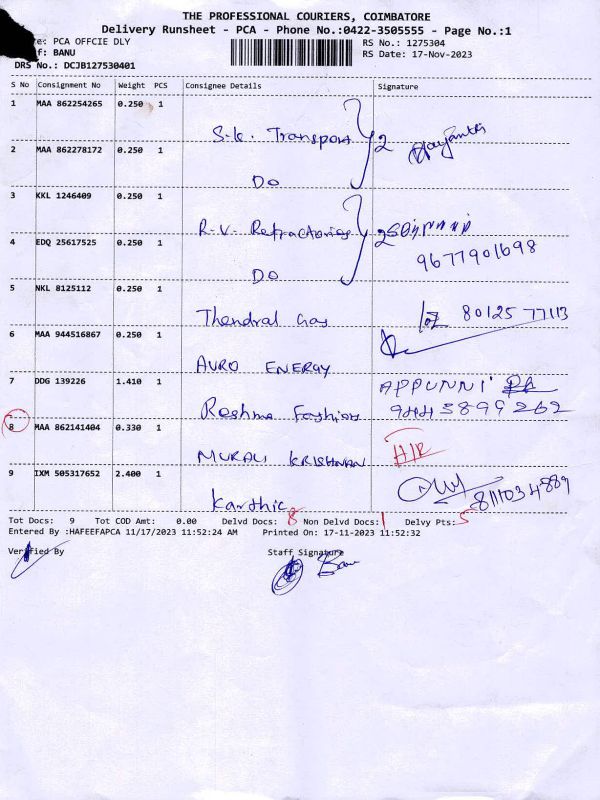 THE PROFESSIONAL COURIERS, COIMBATORE
Delivery Runsheet - PCA - Phone No.:0422-3505555 - Page No.:1
PCA OFFCIE DLY
RS No.: 1275304
BANU
RS Date: 17-Nov-2023
DRS No.: DCJB127530401
S No Consignment No Weight PCS Consignee Details Signature
1 MAA 862254265 0.250 1
S.k. Transport } 2
2 MAA 862278172 0.250 1
Do
3 KKL 1246409 0.250 1
R.V. Refractories } 2
4 EDQ 25617525 0.250 1
9677901698
Do
5 NKL 8125112 0.250 1
Thendral Gas 80125 77113
6 MAA 944516867 0.250 1
AURO ENERGY
7 DDG 139226 1.410 1
APPUNNI
Reshma Fashion 9443899262
8 MAA 862141404 0.330 1
MURALI KRISHNAN
9 IXM 505317652 2.400 1
Karthic 8111034889
Tot Docs: 9 Tot COD Amt: 0.00 Delvd Docs: 8 Non Delvd Docs: 1 Delvy Pts: 5
Entered By :HAFEEFAPCA 11/17/2023 11:52:24 AM Printed On: 17-11-2023 11:52:32
Verified By Staff Signature
Banu